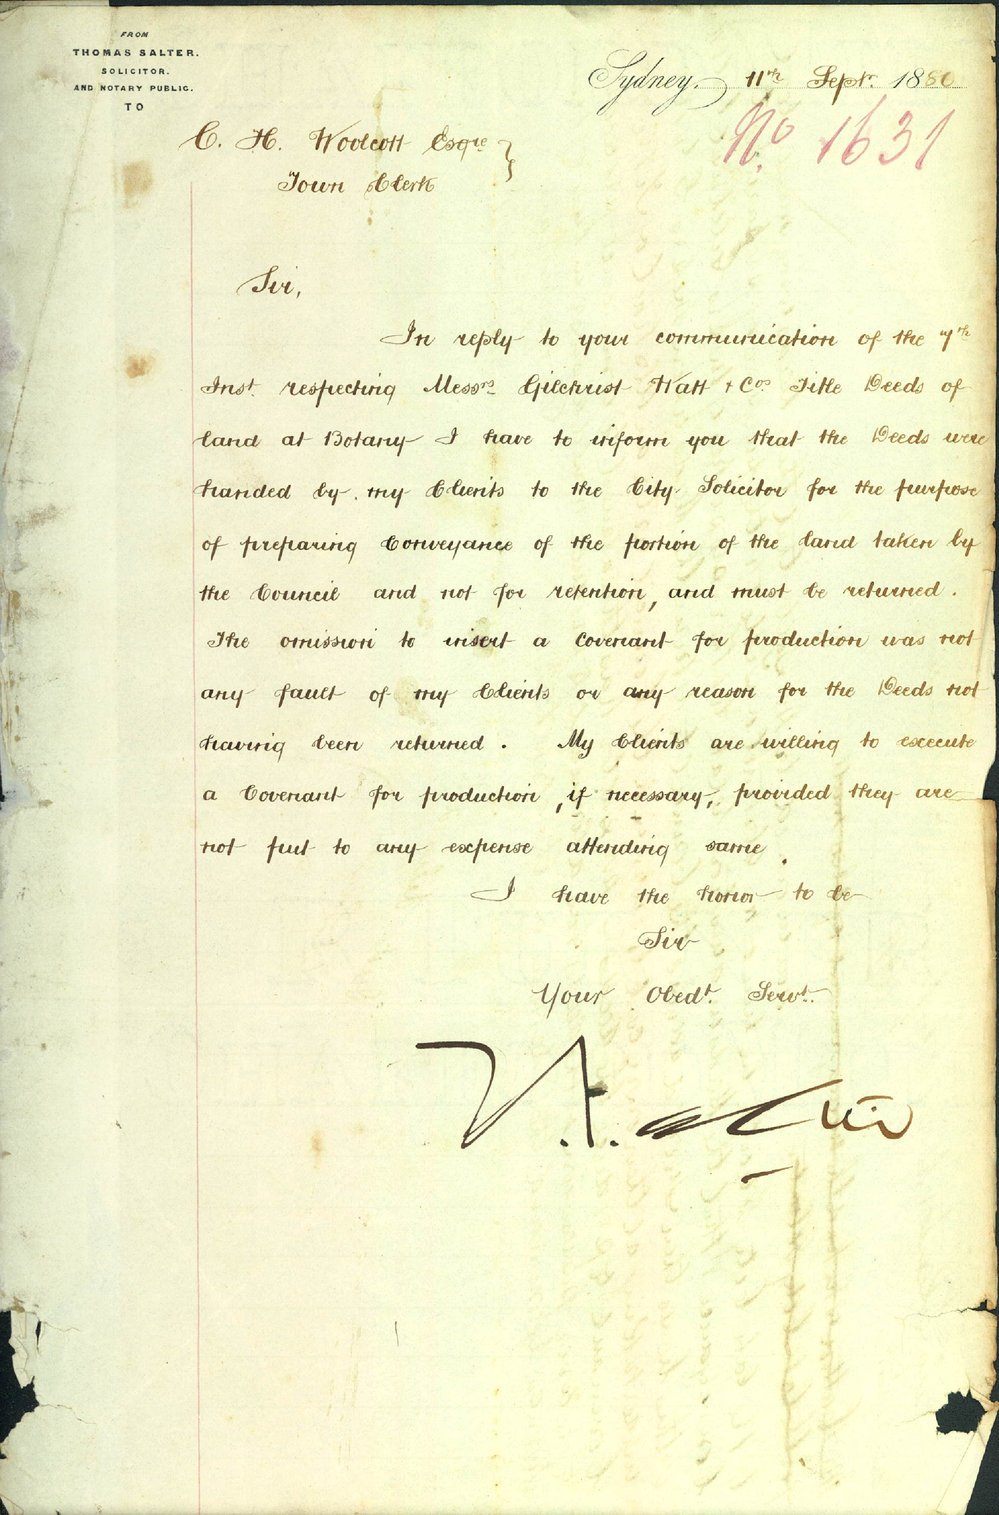 FROM
THOMAS SALTER.
SOLICITOR.
AND NOTARY PUBLIC.
TO
Sydney. 11th Septr. 1880
No. 1631
C. H. Woolcott Esqre }
Town Clerk
Sir,
In reply to your communication of the 7th
Inst. respecting Messrs Gilchrist Watt & Cos Title Deeds of
land at Botany I have to inform you that the Deeds were
handed by my Clients to the City Solicitor for the purpose
of preparing Conveyance of the portion of the land taken by
the Council and not for retention, and must be returned.
The omission to insert a Covenant for production was not
any fault of my Clients or any reason for the Deeds not
having been returned. My Clients are willing to execute
a Covenant for production, if necessary, provided they are
not put to any expense attending same.
I have the honor to be
Sir
Your Obedt. Servt.
T. Salter